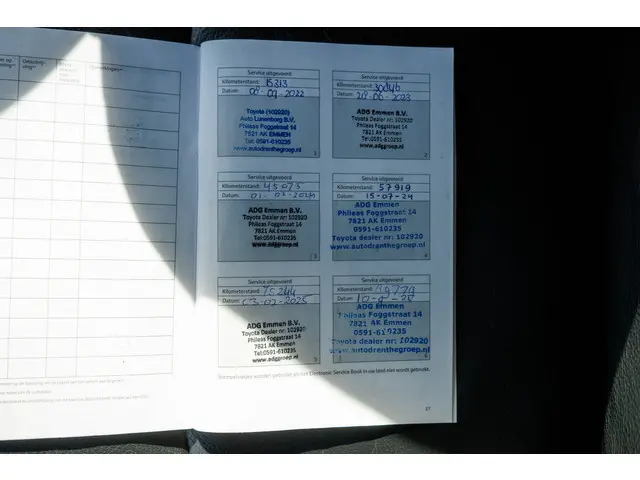 Service uitgevoerd
Kilometerstand: 15313
Datum: 08-09-2022
Toyota (102920)
Auto Lunenborg B.V.
Phileas Foggstraat 14
7821 AK EMMEN
Tel: 0591-610235
www.autodrenthegroep.nl
1
Service uitgevoerd
Kilometerstand: 30046
Datum: 28-06-2023
ADG Emmen B.V.
Toyota Dealer nr: 102920
Phileas Foggstraat 14
7821 AK Emmen
Tel:0591-610235
www.adggroep.nl
2
Service uitgevoerd
Kilometerstand: 45073
Datum: 01-02-2024
ADG Emmen B.V.
Toyota Dealer nr: 102920
Phileas Foggstraat 14
7821 AK Emmen
Tel:0591-610235
www.adggroep.nl
3
Service uitgevoerd
Kilometerstand: 57919
Datum: 15-07-24
ADG Emmen
Phileas Foggstraat 14
7821 AK Emmen
0591-610235
Toyota dealer nr: 102920
www.autodrenthegroep.nl
4
Service uitgevoerd
Kilometerstand:
Datum: 03-02-2025
ADG Emmen B.V.
Toyota Dealer nr: 102920
Phileas Foggstraat 14
7821 AK Emmen
Tel:0591-610235
www.adggroep.nl
5
Service uitgevoerd
Kilometerstand:
Datum:
ADG Emmen
Phileas Foggstraat 14
7821 AK Emmen
0591-610235
Toyota dealer nr: 102920
www.autodrenthegroep.nl
6
Stempelvakjes worden gebruikt als het Electronic Service Book in uw land niet wordt gebruikt.
27